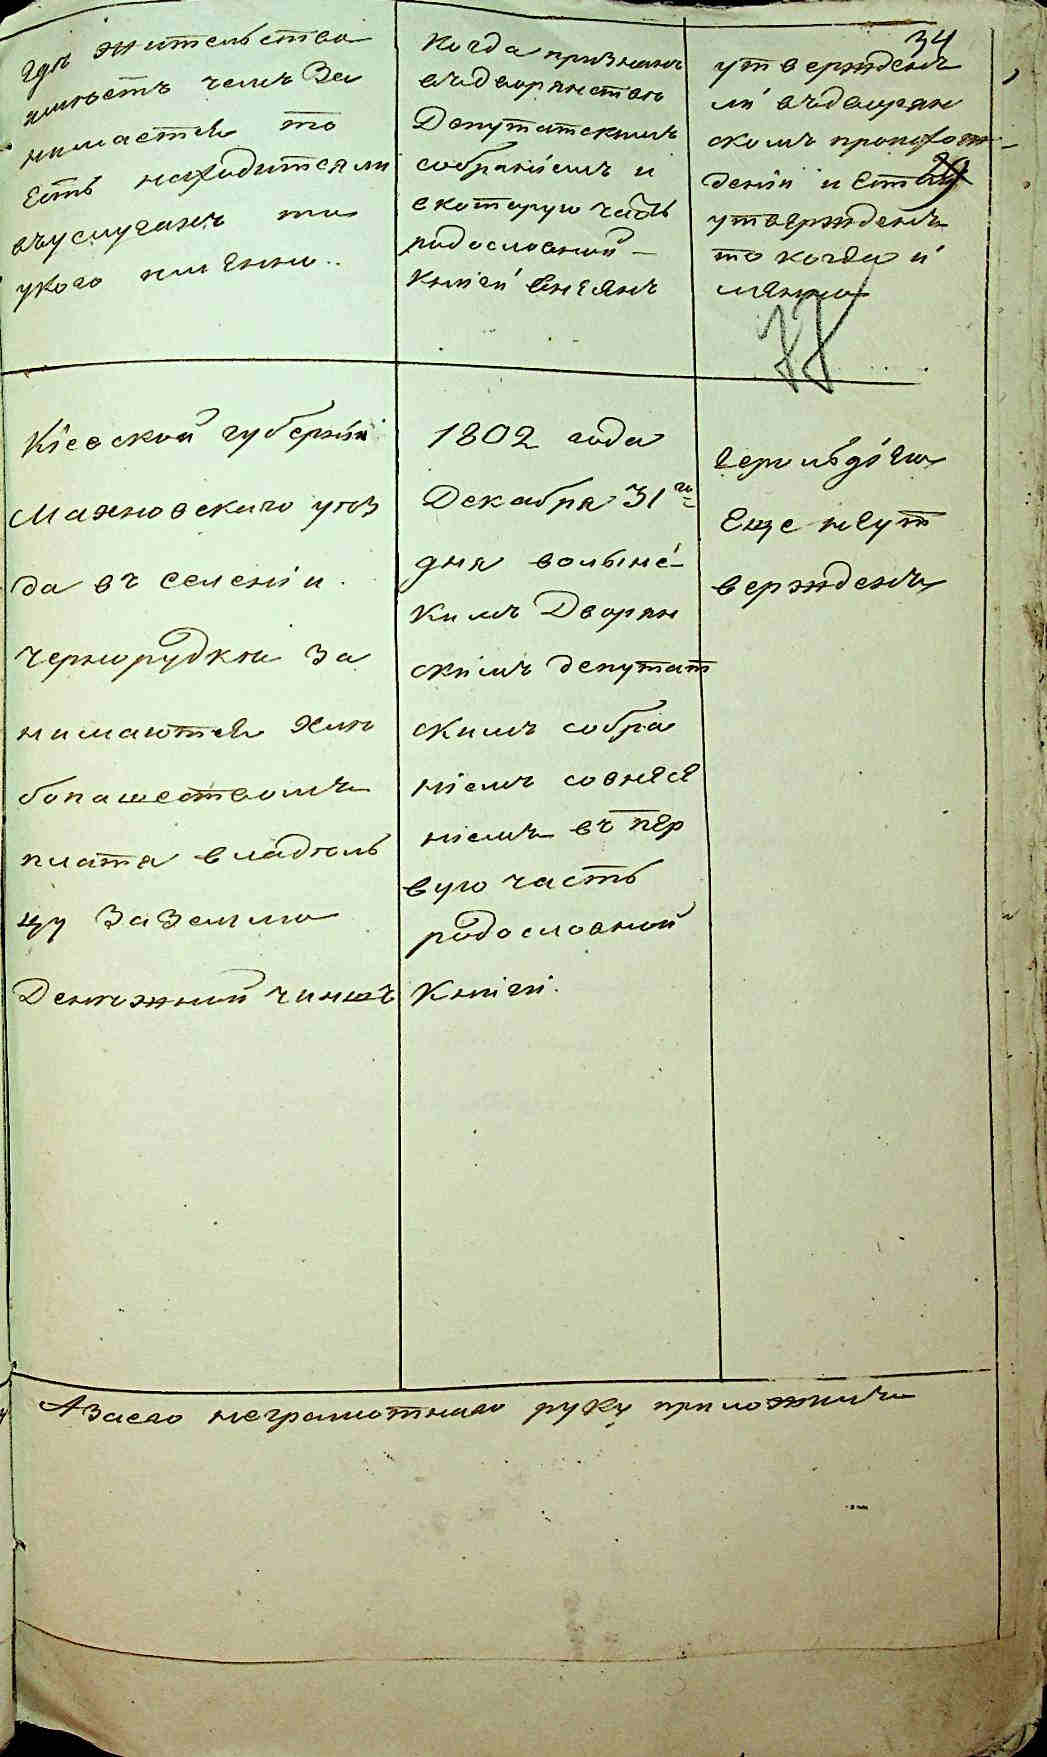 34
Где жительство
имѣетъ чемъ за
нимается то
есть находится ли
въ услугахъ то
у кого именно..
Когда признанъ
въ дворянствѣ
Депутатскимъ
собраніемъ и
в которую часть
родословной
книги внесянъ
утвержденъ
ли въ дворян
скомъ происхож-
деніи и естли
утвержденъ
то когда и
мянно
Кіевской губерніи
Махновского уѣз
да въ селеніи
Чернорудкѣ за
нимаются хлѣ
бопашествомъ
платя владѣль
цу за землю
Денежный чиншъ
1802 года
Декабря 31го
дня волынс-
кимъ Дворян
скимъ депутат
скимъ собра
ніемъ со внесе
ніемъ въ пер
вую часть
родословной
книги.
герольдіею
еще неут
вержденъ
А за его неграмотнаго руку приложилъ